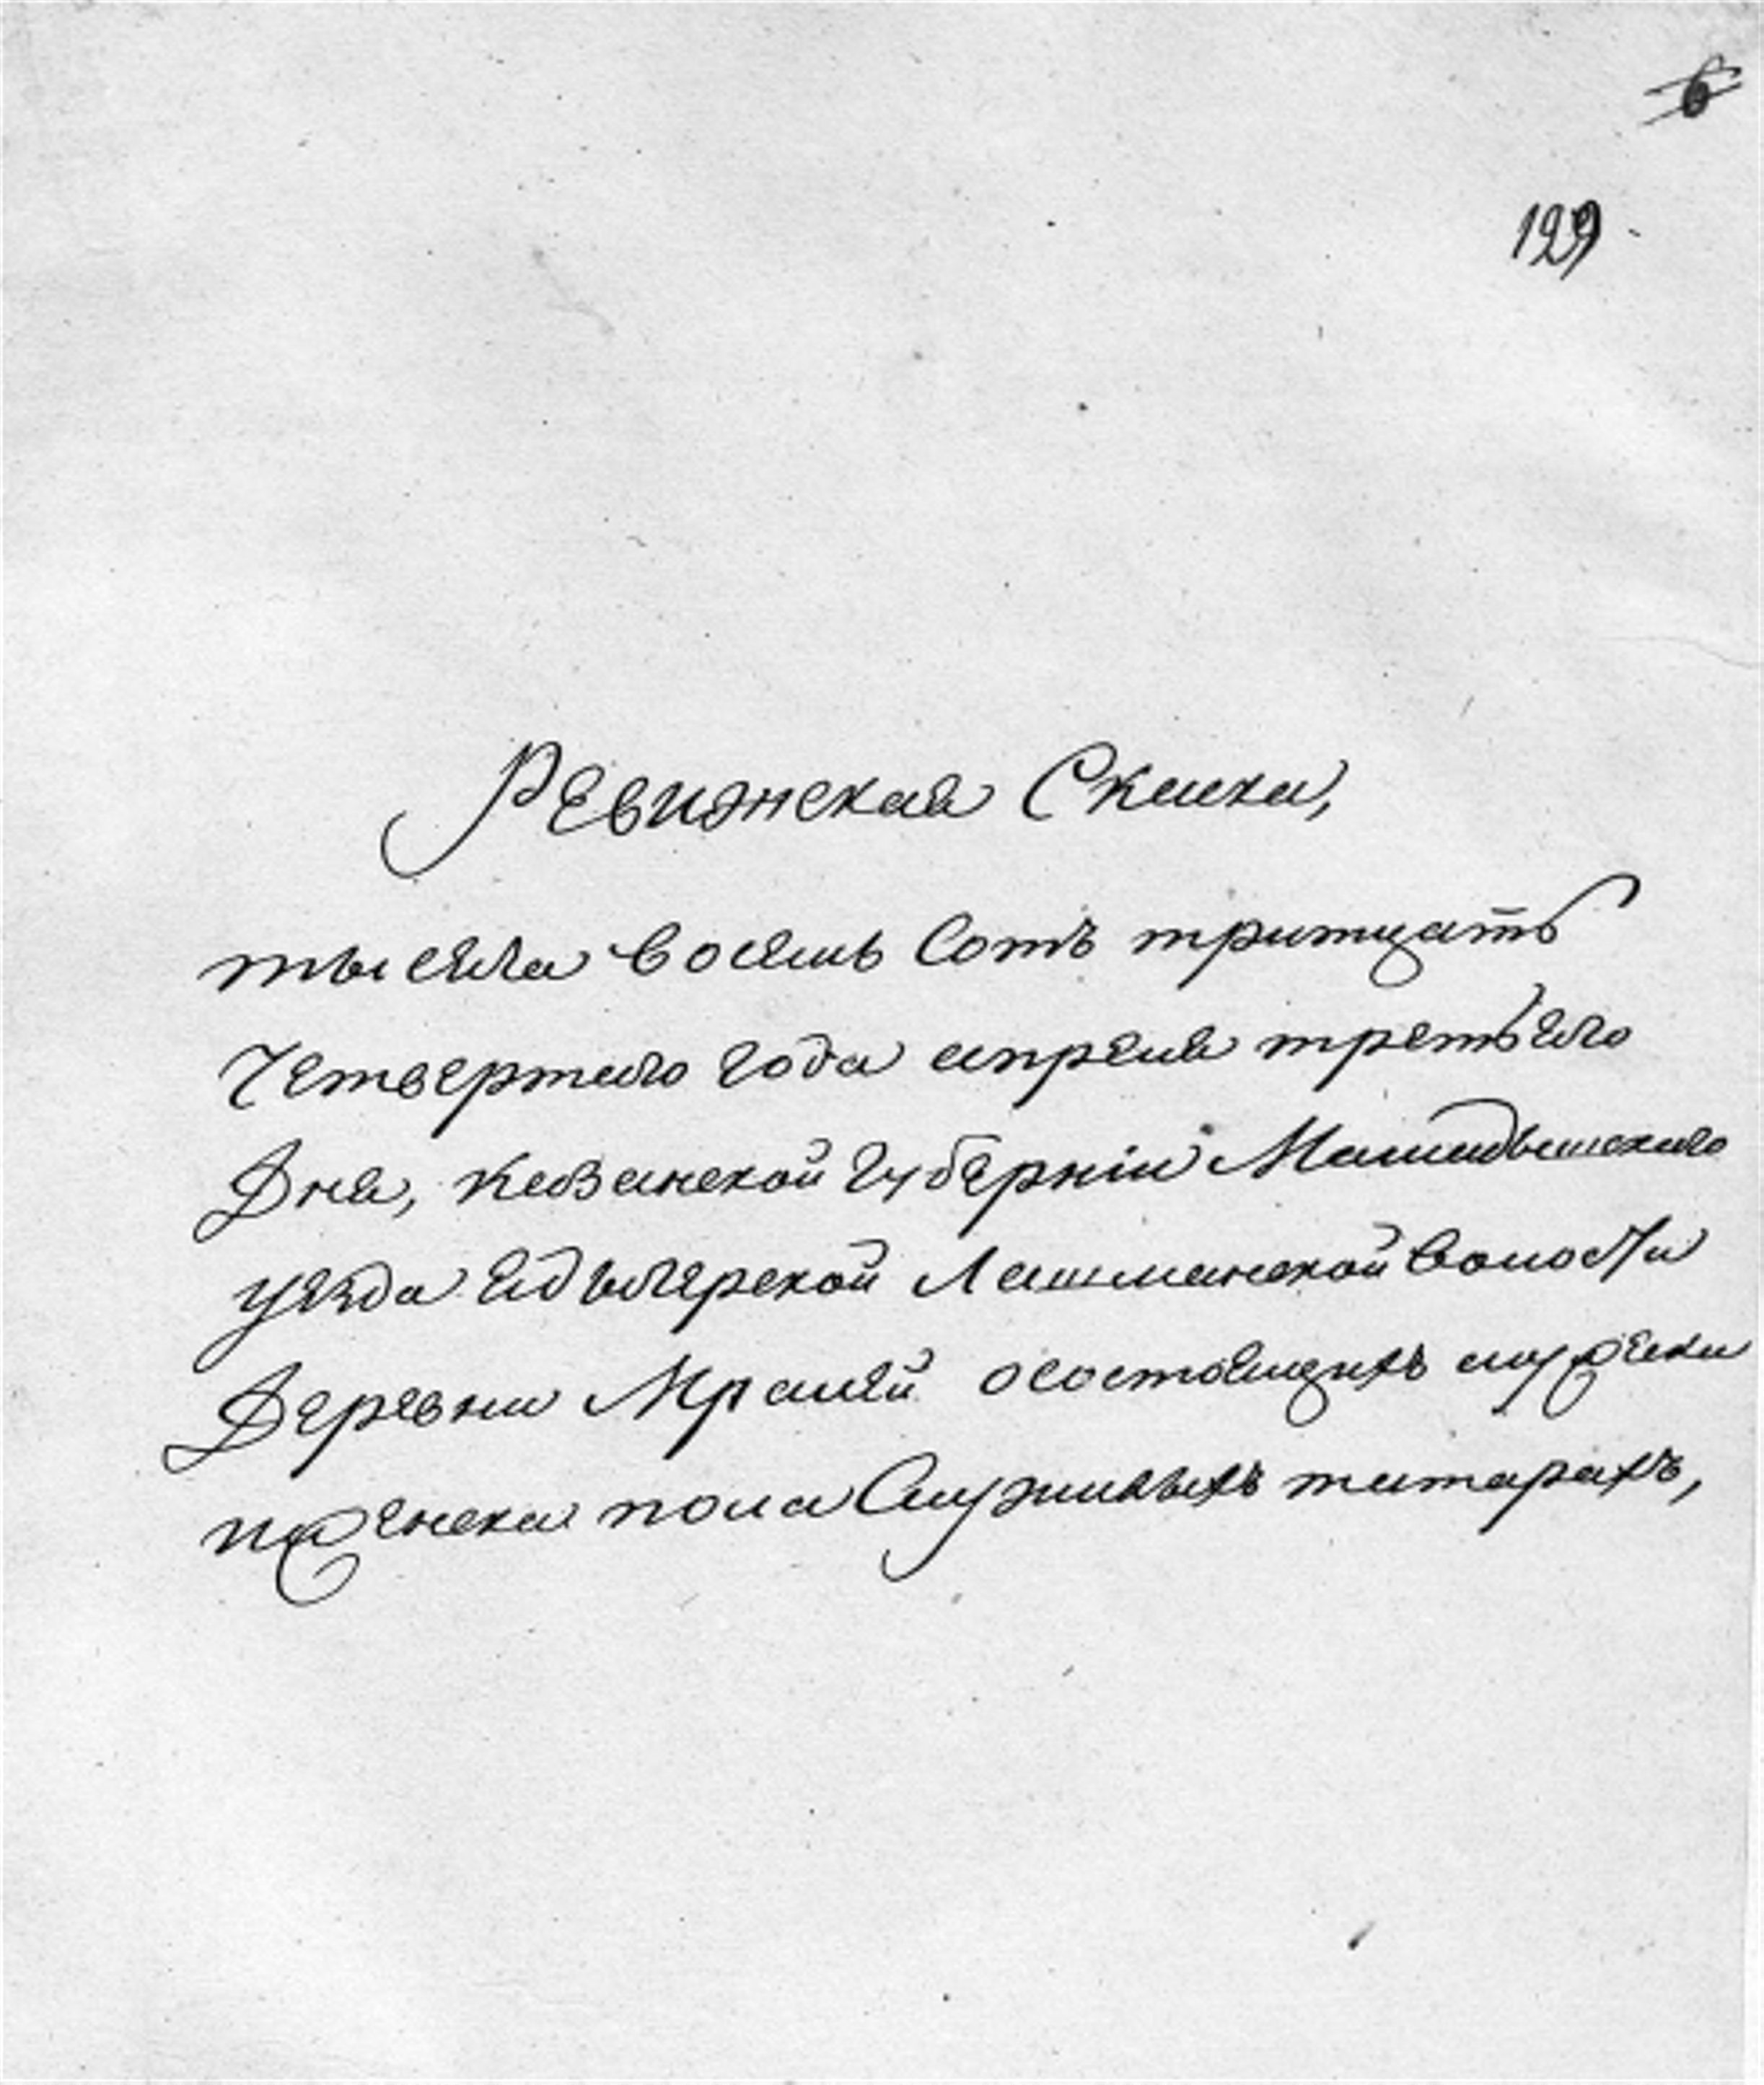 6
129
Ревижская Скаска,
тысяча восемь Сотъ тритцать
Четвертаго года апреля третьего
Дня, Казанской губерніи Мамадышскаго
уезда Лашманской волости
Деревни осостоящихъ мужска
иженска пола Служилыхъ татарахъ,